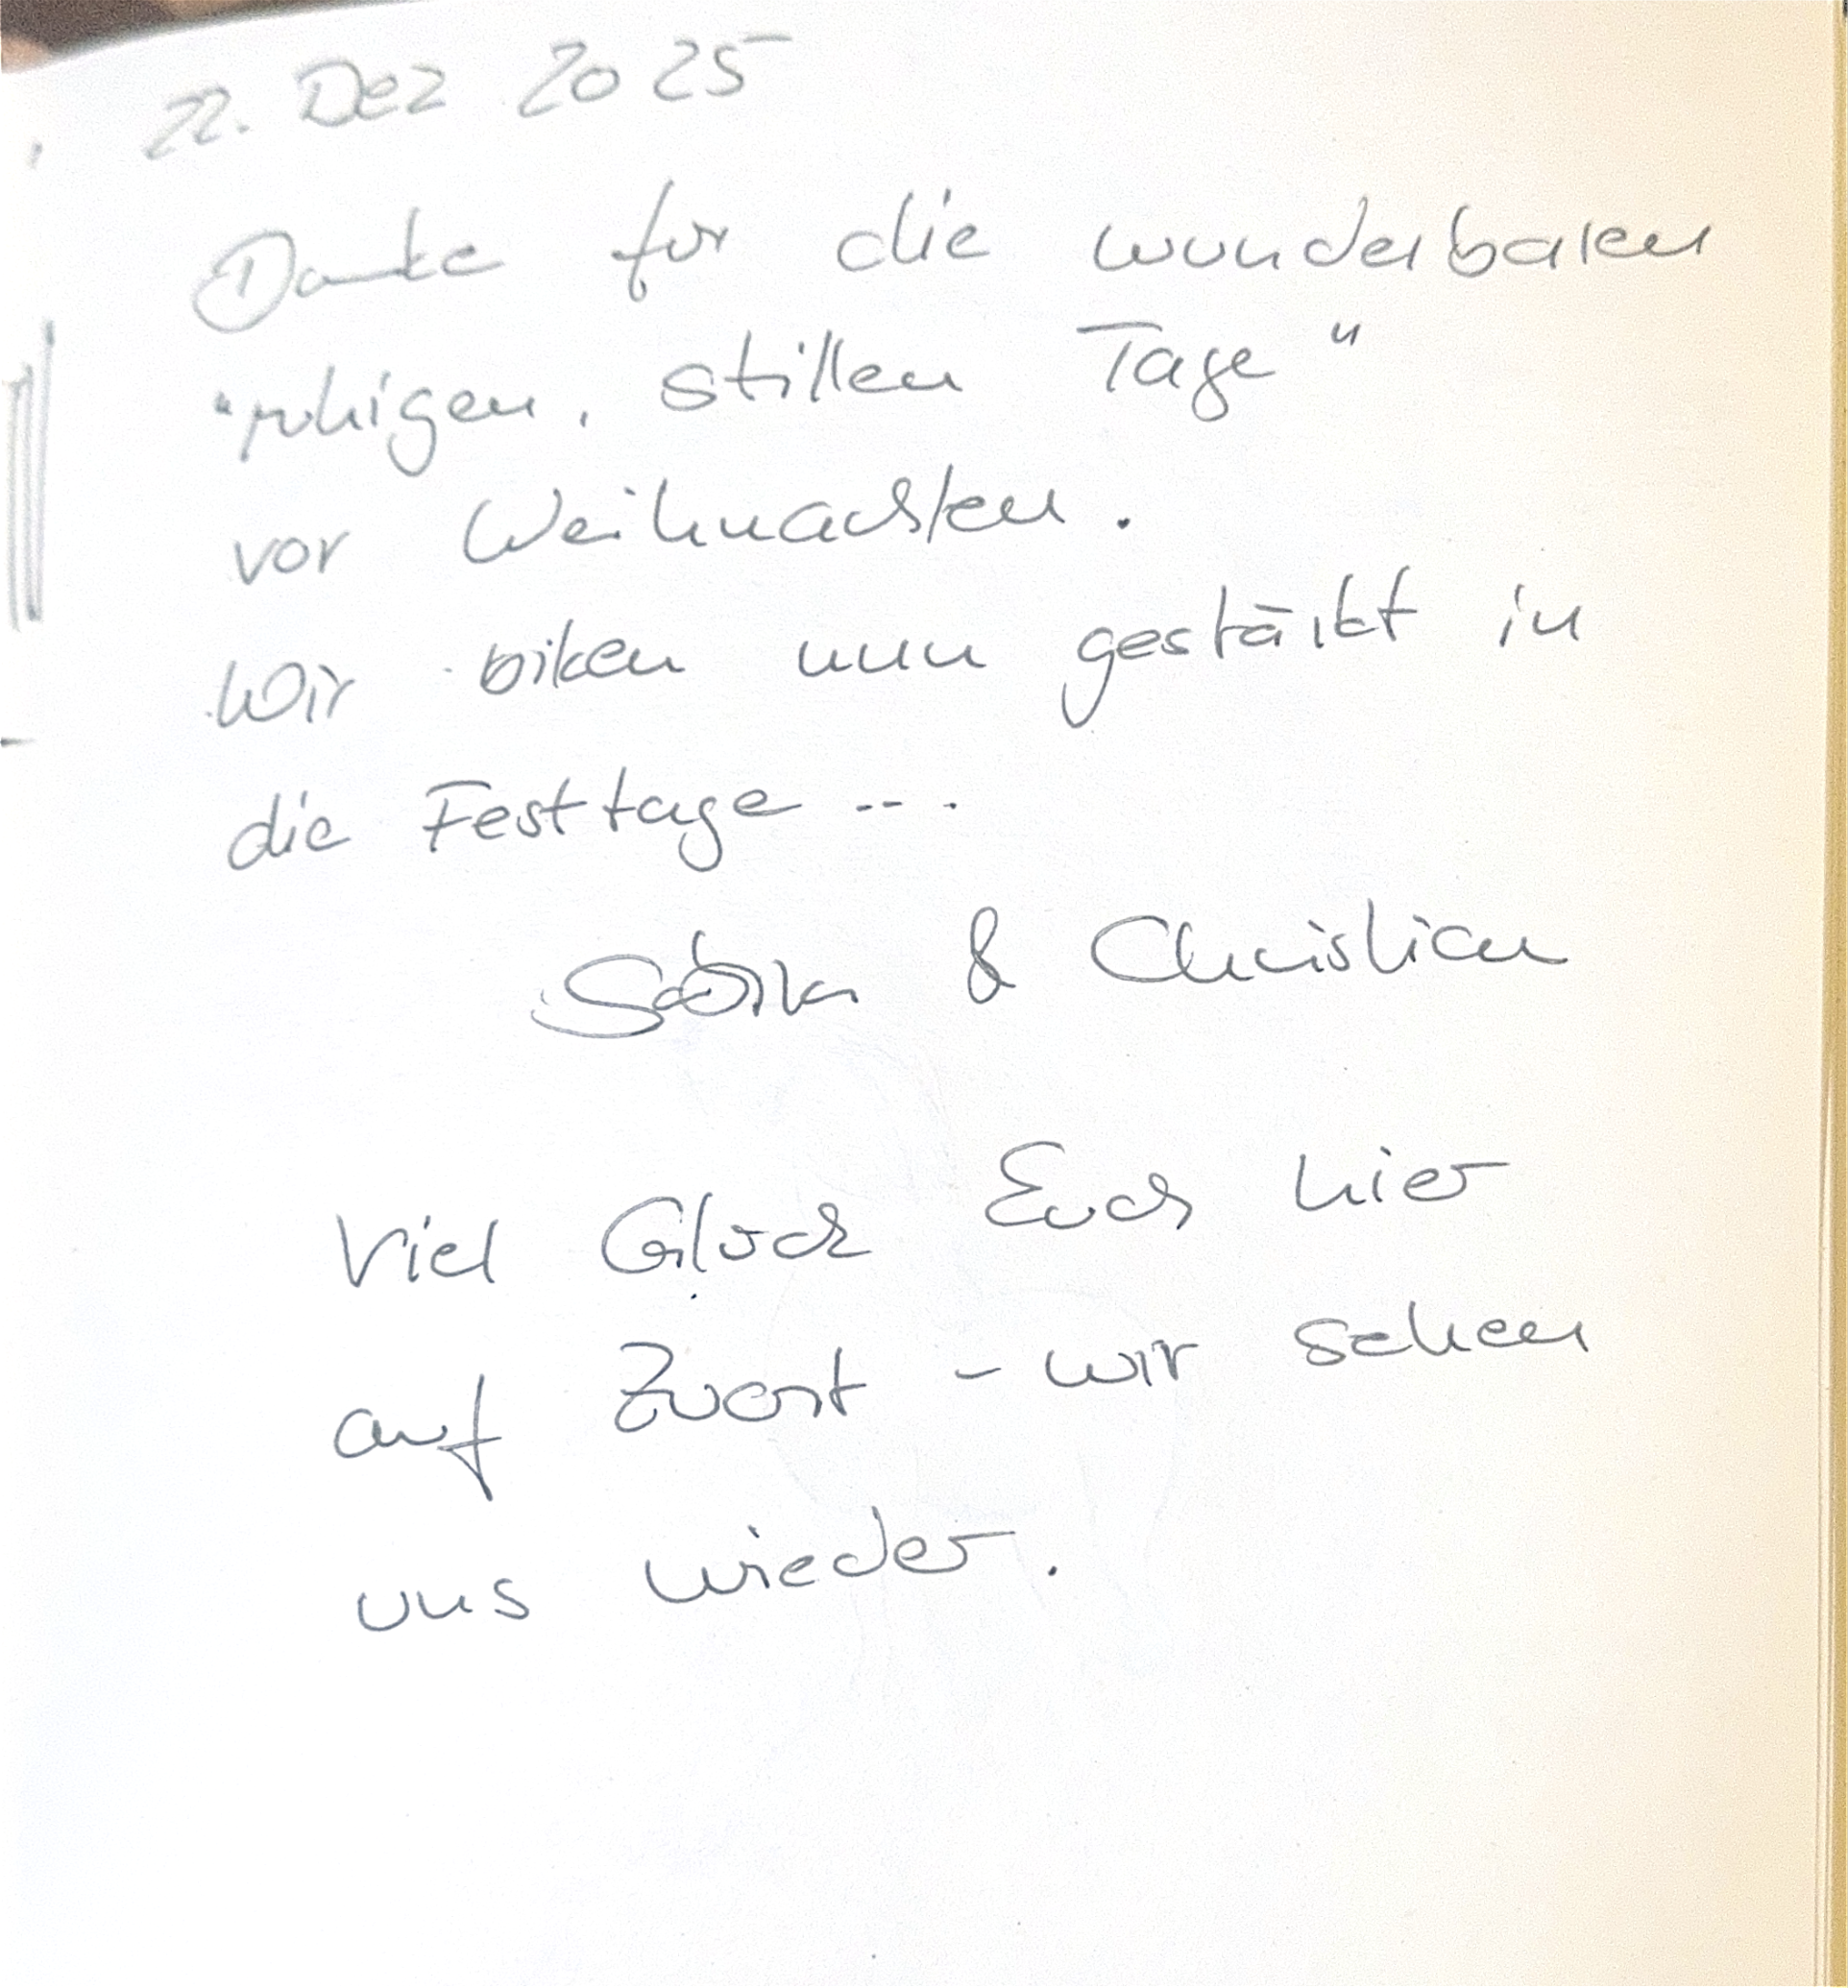 22. Dez 2025
Danke für die wunderbaren
"ruhigen, stillen Tage"
vor Weihnachten.
Wir biken nun gestärkt in
die Festtage ...
& Christian
Viel Glück Euch hier
auf - wir sehen
uns wieder.